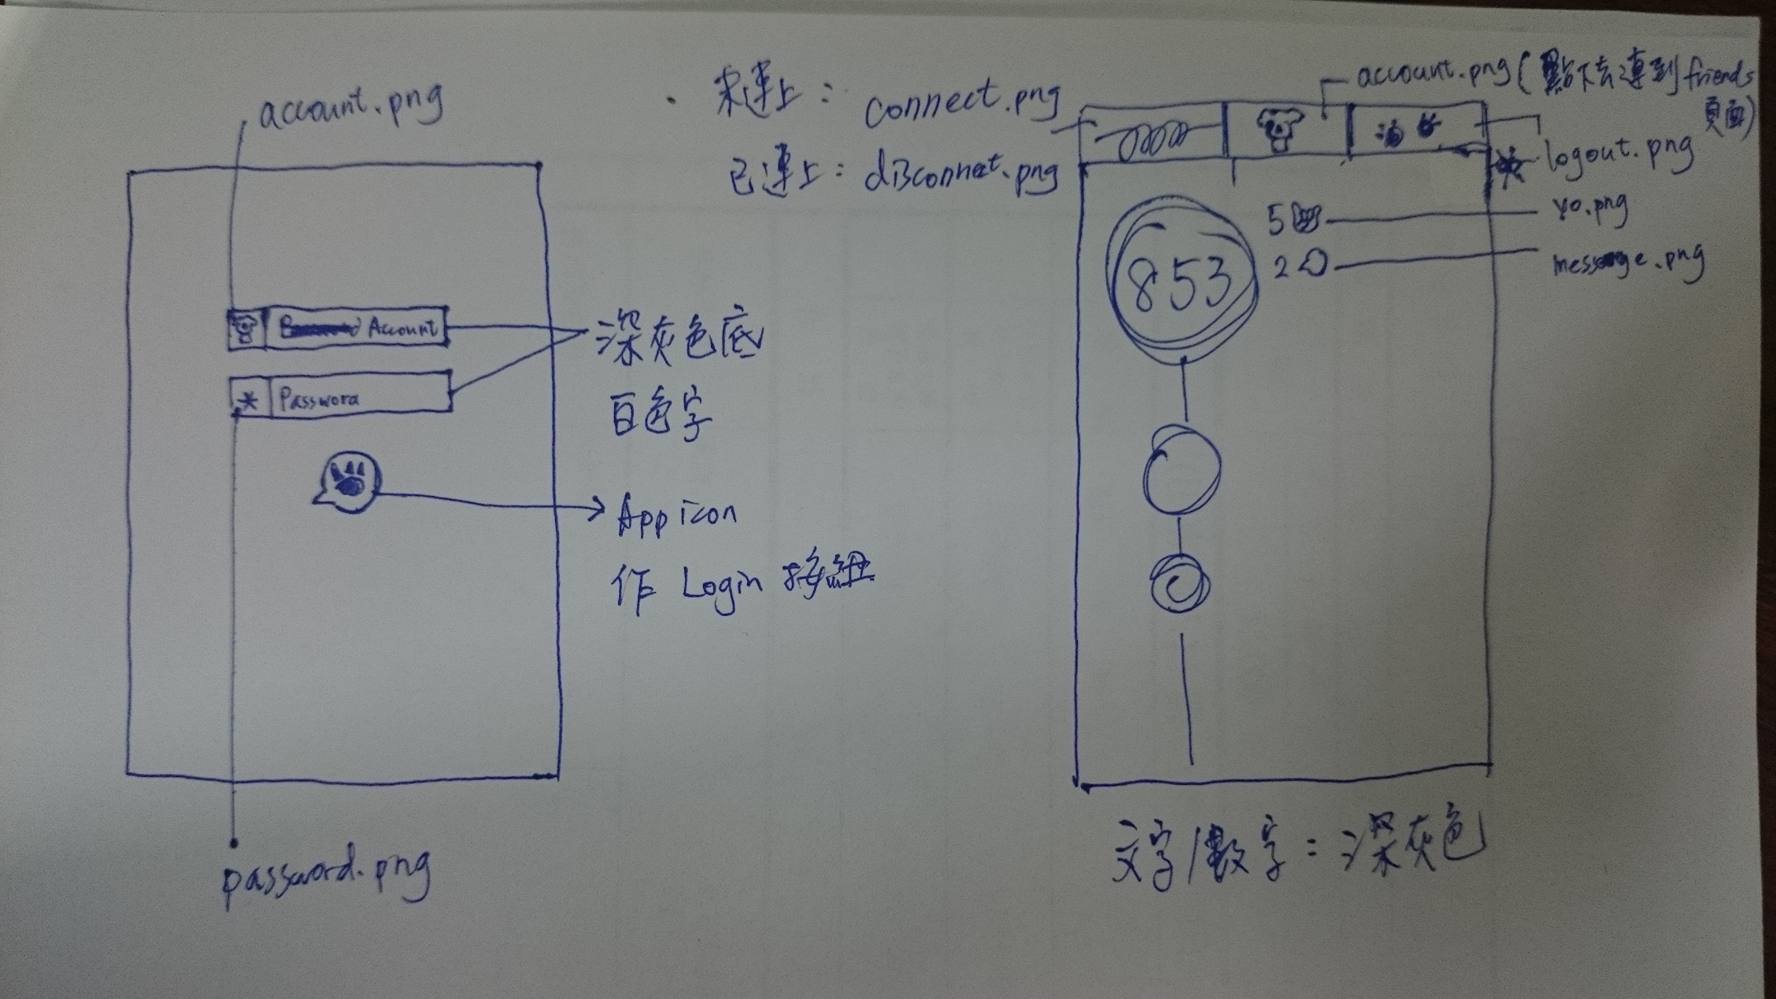 account.png
Account
Password
深灰色底
白色字
App icon
作 Login 按鈕
password.png
未連上：connect.png
已連上：disconnet.png
account.png（點下去連到friends
頁面）
logout.png
5
yo.png
853
2
message.png
文字/數字：深灰色